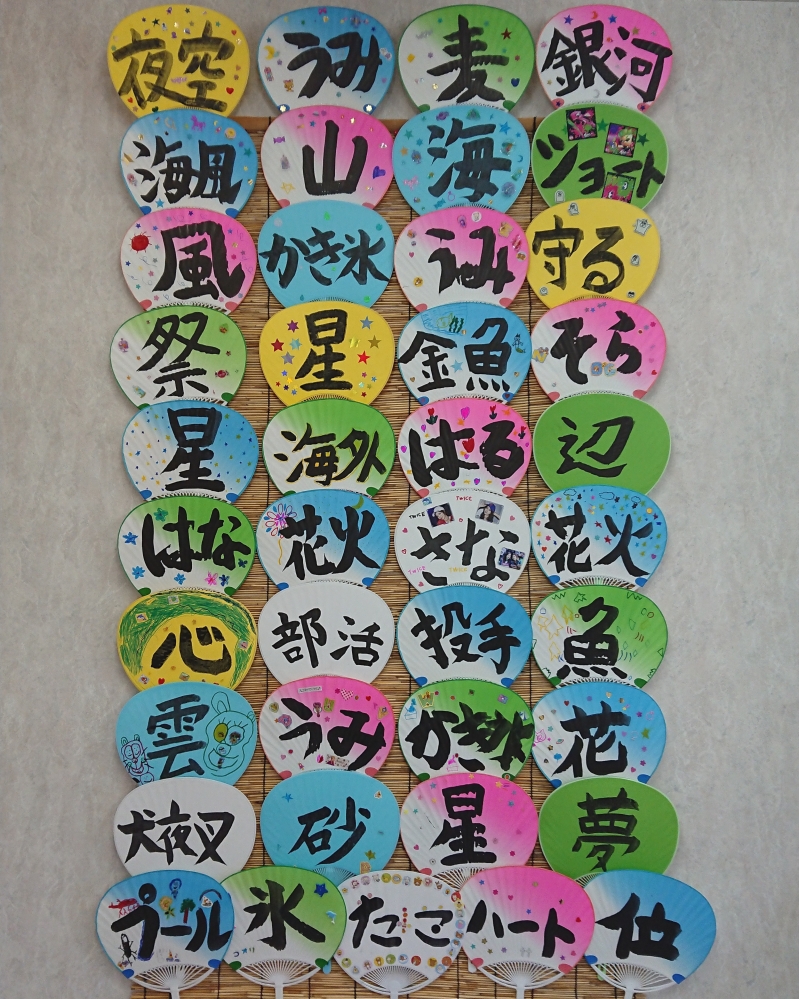 夜空 うみ 麦 銀河
海風 山 海 ショート
風 かき氷 うみ 守る
祭 星 金魚 そら
星 海外 はる 辺
はな 花火 さな 花火
心 部活 投手 魚
雲 うみ かき氷 花
犬夜叉 砂 星 夢
プール 氷 たこ ハート 位